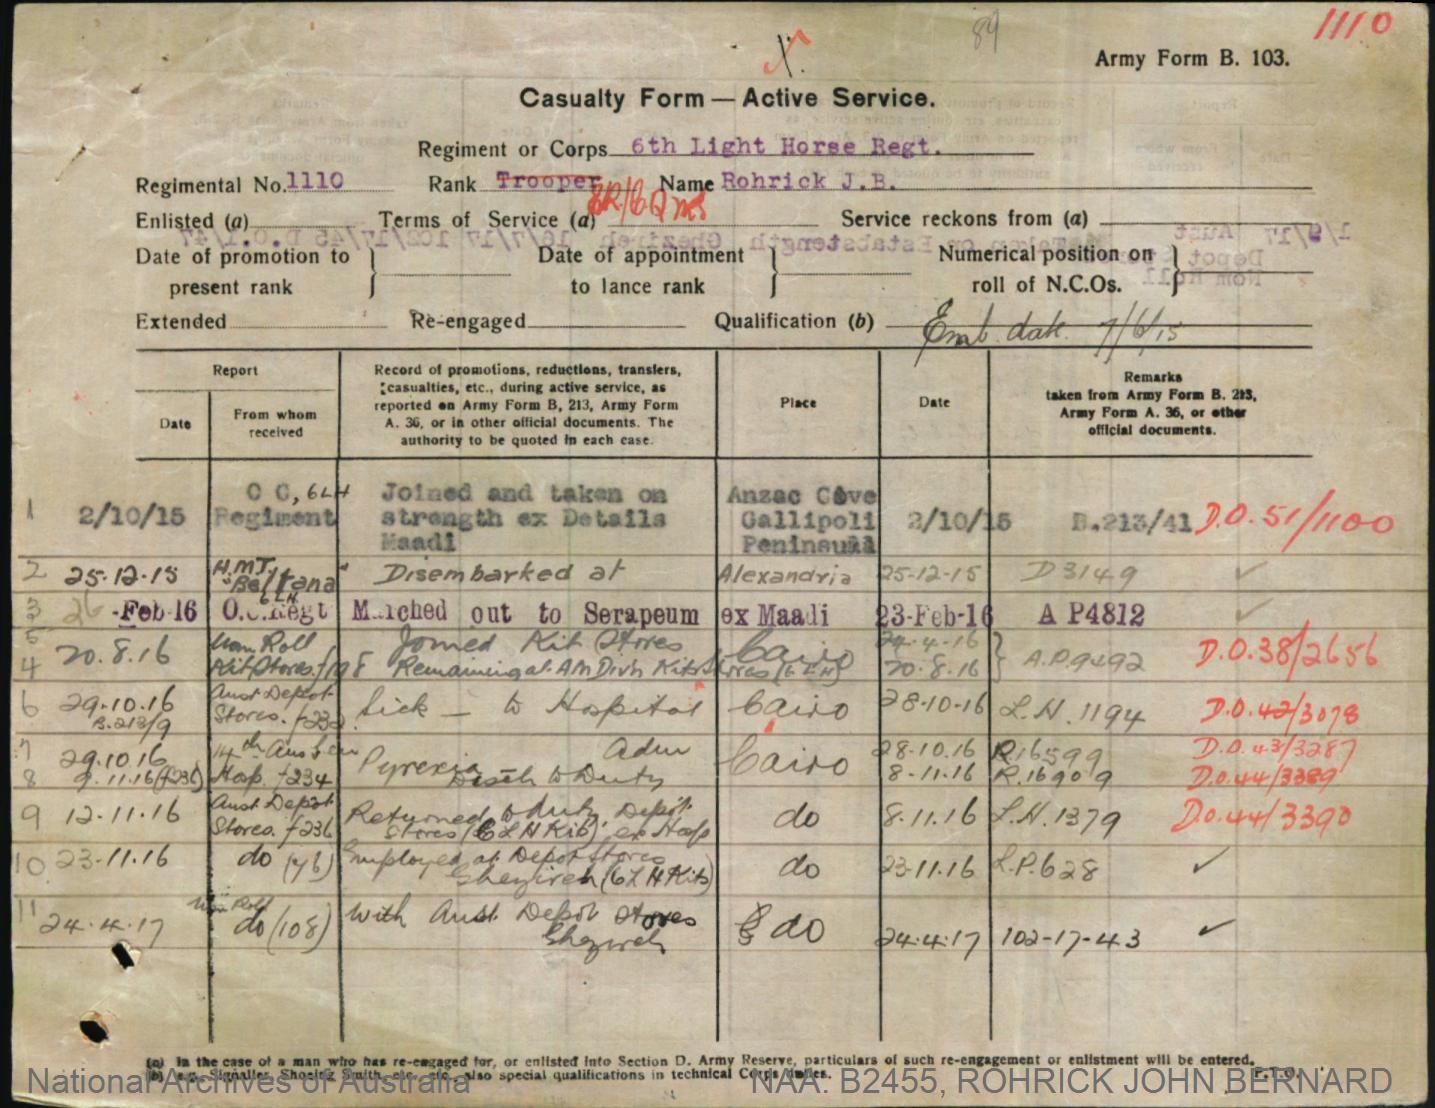 1110
89
Army Form B. 103.
Casualty Form — Active Service.
Regiment or Corps 6th Light Horse Regt.
Regimental No. 1110 Rank Trooper Name Rohrick J.B.
ER/CQMS
Enlisted (a) Terms of Service (a) Service reckons from (a)
Date of promotion to present rank } Date of appointment to lance rank } Numerical position on roll of N.C.Os. }
Extended Re-engaged Qualification (b)
Emb. date 7/6/15
Report
Date
From whom received
Record of promotions, reductions, transfers,
casualties, etc., during active service, as
reported on Army Form B, 213, Army Form
A. 36, or in other official documents. The
authority to be quoted in each case.
Place
Date
Remarks
taken from Army Form B. 213,
Army Form A. 36, or other
official documents.
1 2/10/15 O C, 6LH Regiment Joined and taken on strength ex Details Maadi Anzac Cove Gallipoli Peninsula 2/10/15 B.213/41 D.O.51/1100
2 25-12-15 H.M.T. "Beltana" Disembarked at Alexandria 25-12-15 D3149 ✓
3 26 -Feb-16 O.C. 6LH Regt Marched out to Serapeum ex Maadi 23-Feb-16 A P4812 ✓
5 Nom Roll Joined Kit Stores Cairo 24-4-16
4 20.8.16 Kit Stores f198 Remaining at A.M Divn Kit Stores (6LH) 20.8.16 A.P.9492 D.O.38/2656
6 29.10.16 B.213/9 Aust Depot Stores. f232 Sick — to Hospital Cairo 28-10-16 L.H. 1194 D.O.42/3078
7 29.10.16 14th Aus Gen Pyrexia Adm Cairo 28.10.16 R16599 D.O.43/3287
8 9.11.16 (f236) Hosp. f234 Disch to Duty 8.11.16 R.16909 D.O.44/3389
9 12.11.16 Aust Depot Stores. f236 Returned to duty. Depot Stores (6 L H Kit) ex Hosp do 8.11.16 L.H.1379 D.O.44/3390
10 23.11.16 do (46) Employed at Depot Stores Ghezireh (6 L H Kits) do 23.11.16 L.P.628 ✓
11 24.4.17 Nom Roll do (108) With Aust Depot Stores Ghezireh do 24.4.17 102-17-43 ✓
(a) In the case of a man who has re-engaged for, or enlisted into Section D. Army Reserve, particulars of such re-engagement or enlistment will be entered.
(b) e.g., Signaller, Shoeing Smith, etc., etc., also special qualifications in technical Corps duties. P.T.O.
National Archives of Australia NAA: B2455, ROHRICK JOHN BERNARD